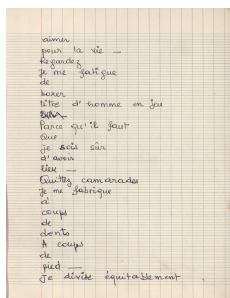 aimer
pour la vie —
Regardez
Je me fatigue
de
boxer
titre d'homme en jeu
Parce qu'il faut
Que
je sois sûr
d'avoir
lieu —
Quittez camarades
Je me fabrique
à
coups
de
dents
A coups
de
pied —
Je divise équitablement